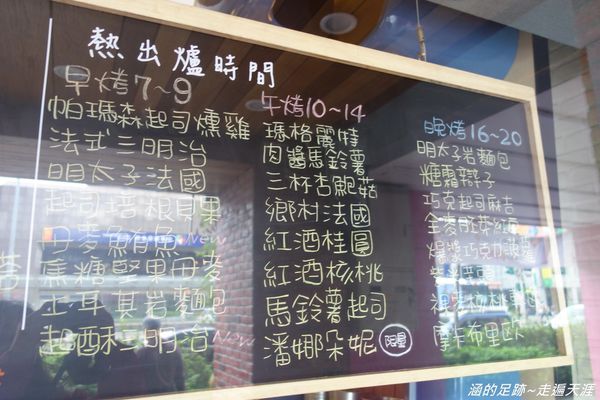 熱出爐時間
早烤7~9
帕瑪森起司燻雞
法式三明治
明太子法國
起司培根貝果
母麥鮪魚 New
焦糖堅果母麥
土耳其岩麵包
起酥三明治 New
午烤10~14
瑪格麗特
肉醬馬鈴薯
三杯杏鮑菇
鄉村法國
紅酒桂圓
紅酒核桃
馬鈴薯起司
潘娜朵妮
晚烤16~20
明太子岩麵包
糖霜辮子
巧克起司麻吉
全麥
爆漿巧克力
摩卡布里歐
涵的足跡~走遍天涯